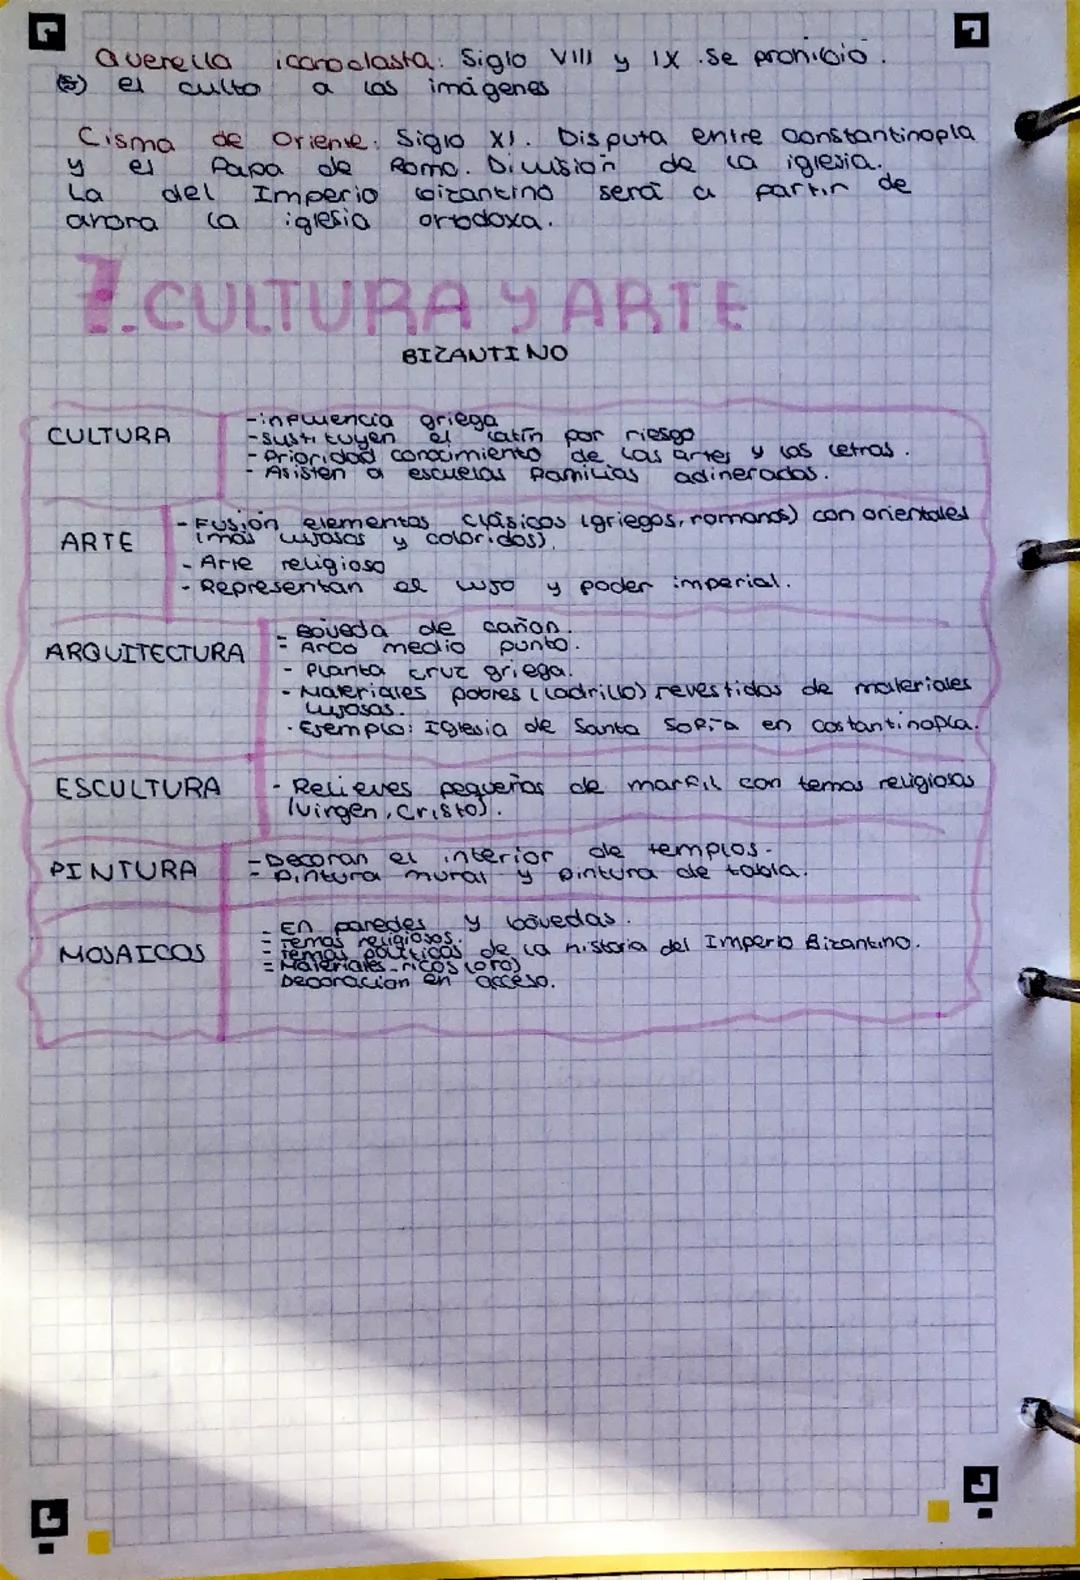 Querella iconoclasta: Siglo VIII y IX. Se prohibió
el culto a las imágenes
Cisma de Oriente: Siglo XI. Disputa entre Constantinopla
y el Papa de Roma. División de la iglesia.
La del Imperio bizantino será a partir de
ahora la iglesia ortodoxa.
7. CULTURA Y ARTE
BIZANTINO
CULTURA
-influencia griega
-sustituyen el latín por riesgo
-Prioridad conocimiento de las artes y las letras.
- Asisten a escuelas familias adineradas.
ARTE
- Fusión elementos clásicos (griegos, romanos) con orientales
(más lujosos y coloridos).
- Arte religioso
- Representan el lujo y poder imperial.
ARQUITECTURA
- Bóveda de cañon.
- Arco medio punto.
- Planta cruz griega.
- Materiales pobres (ladrillo) revestidos de materiales
lujosos.
- Ejemplo: Iglesia de Santa Sofía en costantinopla.
ESCULTURA
- Relieves pequeños de marfil con temas religiosos
(Virgen, Cristo).
PINTURA
-Decoran el interior de templos.
- Pintura mural y pintura de tabla.
MOSAICOS
- En paredes y bóvedas.
- Temas religiosos.
- Temas políticos de la historia del Imperio Bizantino.
- Materiales ricos (oro)
Decoración en acceso.